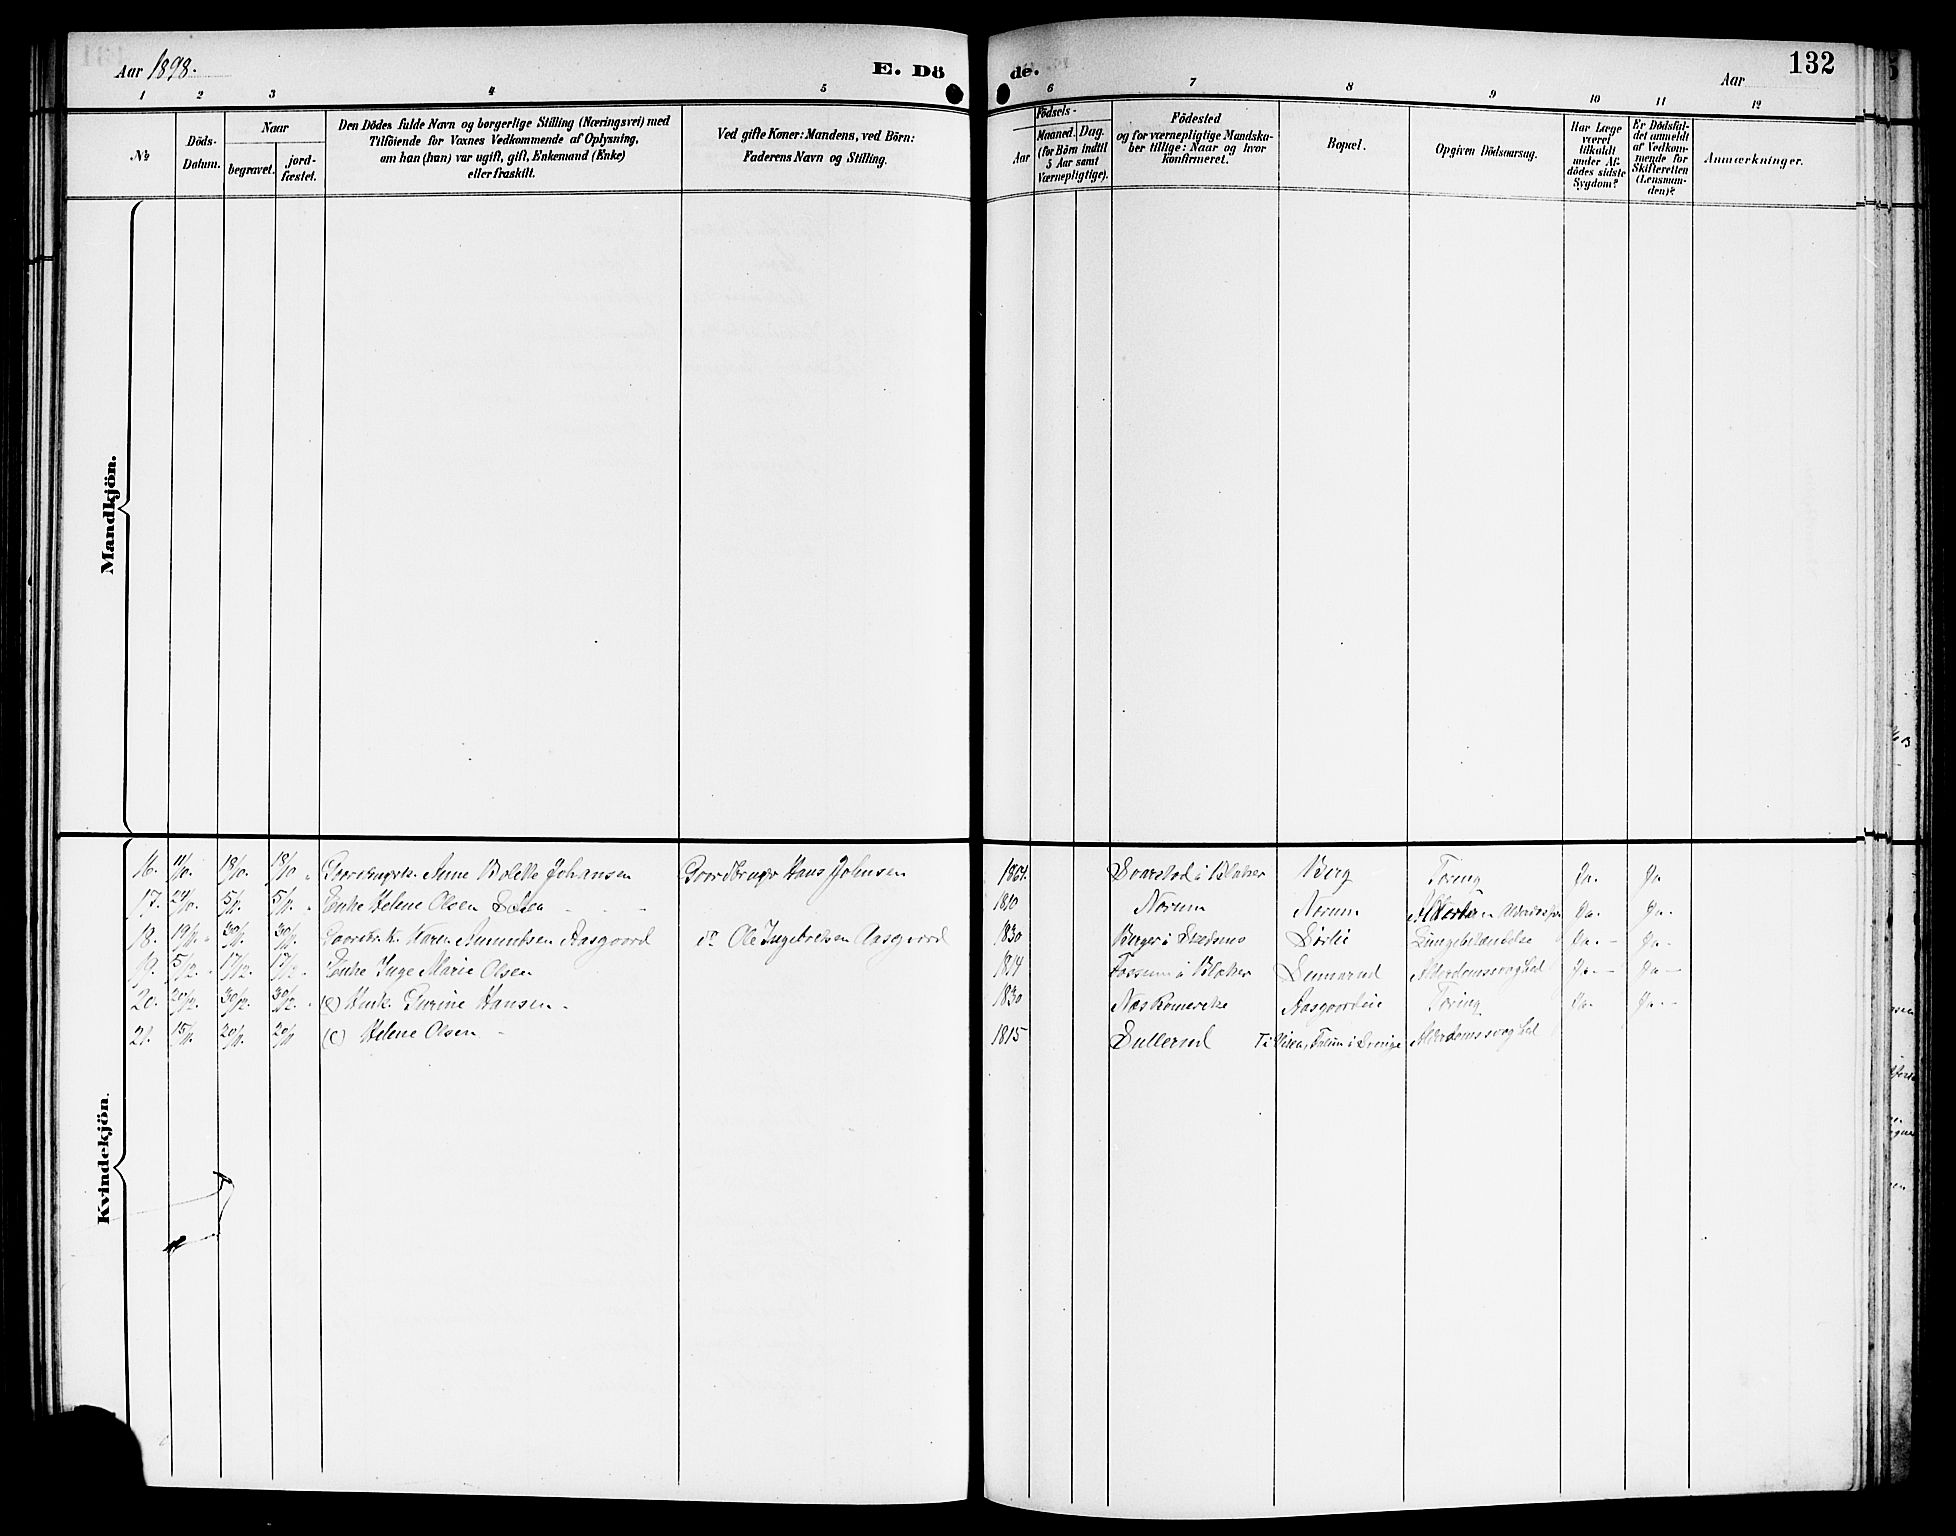 Aar 1898.
E. Dö
de.
132
Aar
1 2 3 4 5 6 7 8 9 10 11 12
№
Döds-Datum.
Naar
begravet.
jord-fæstet.
Den Dödes fulde Navn og borgerlige Stilling (Næringsvei) med
Tilföiende for Voxnes Vedkommende af Oplysning,
om han (hun) var ugift, gift, Enkemand (Enke)
eller fraskilt.
Ved gifte Koner: Mandens, ved Börn:
Faderens Navn og Stilling.
Födsels-
Aar
Maaned. Dag.
(for Börn indtil
5 Aar samt
Værnepligtige).
Födested
og for værnepligtige Mandska-
ber tillige: Naar og hvor
Konfirmeret.
Bopæl.
Opgiven Dödsaarsag.
Har Læge
været
tilkaldt
under Af-
dödes sidste
Sygdom?
Er Dödsfal-
det anmeldt
af Vedkom-
mende for
Skifteretten
(Lensman-
den)?
Anmærkninger.
Mandkjön.
Kvindekjön.
16. 11/10. 18/10. 18/10 Anne Bolette Johansen Gaardbruger Hans Johnsen 1864. i Blaker Berg Tæring Ja. Ja
17. 24/10. 5/11. 5/11. Enke Helene Olsen 1810 Norum Norum Ja. Ja.
18. 19/11. 30/11. 30/11. Karen Amundsen Aasgaard do Ole Ingebretsen Aasgaard 1830 Berger i Skedsmo Sörlie Lungebetændelse Ja. - Ja.
19. 5/12. 17/12. 17/12. Enke Inge Marie Olsen 1814 Fossum i Blaker Alderdomssvaghed Ja. - Ja -
20. 20/12. 30/12. 30/12. (e) Husk. Gurine Hansen - 1830 Næs Romerike Aasgaardeie Tæring Ja. Ja. -
21. 15/11. 20/11. 20/11 (e) Helene Olsen - 1815 Sullerud Falun i Sverige Alderdomssvaghed